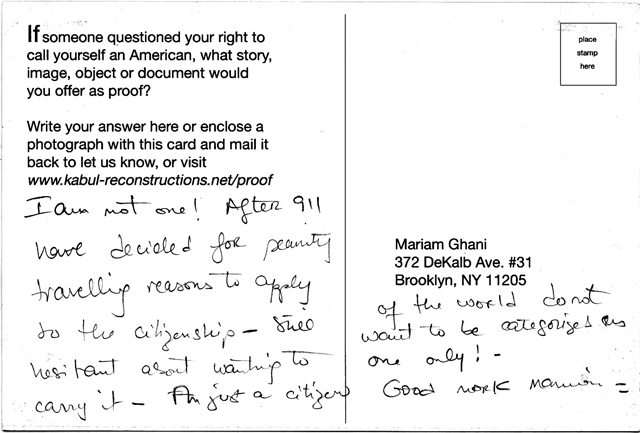 If someone questioned your right to
call yourself an American, what story,
image, object or document would
you offer as proof?
Write your answer here or enclose a
photograph with this card and mail it
back to let us know, or visit
www.kabul-reconstructions.net/proof
I am not one! After 911
have decided for security
travelling reasons to apply
to the citizenship – still
hesitant about wanting to
carry it – Am just a citizen
place
stamp
here
Mariam Ghani
372 DeKalb Ave. #31
Brooklyn, NY 11205
of the world do not
want to be categorized as
one only! –
Good work Mariam =